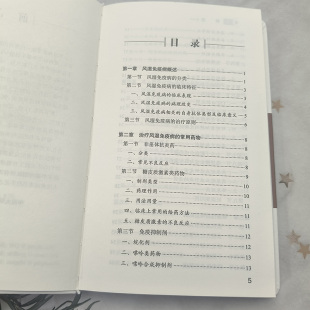 目 录
第一章 风湿免疫病概述 1
第一节 风湿免疫病的分类 1
第二节 风湿免疫病的临床特征 1
一、风湿免疫病的临床表现
二、风湿免疫病的病理改变
三、风湿免疫病相关的自身抗体类型及临床意义
第三节 风湿免疫病的治疗原则
第二章 治疗风湿免疫病的常用药物
第一节 非甾体抗炎药
一、分类
二、常见不良反应
第二节 糖皮质激素类药物
一、制剂类型
二、药理作用
三、用法用量
四、临床上常用的给药方法
五、糖皮质激素的不良反应
第三节 免疫抑制剂
一、烷化剂
二、嘌呤类药物
三、嘧啶合成抑制剂
5